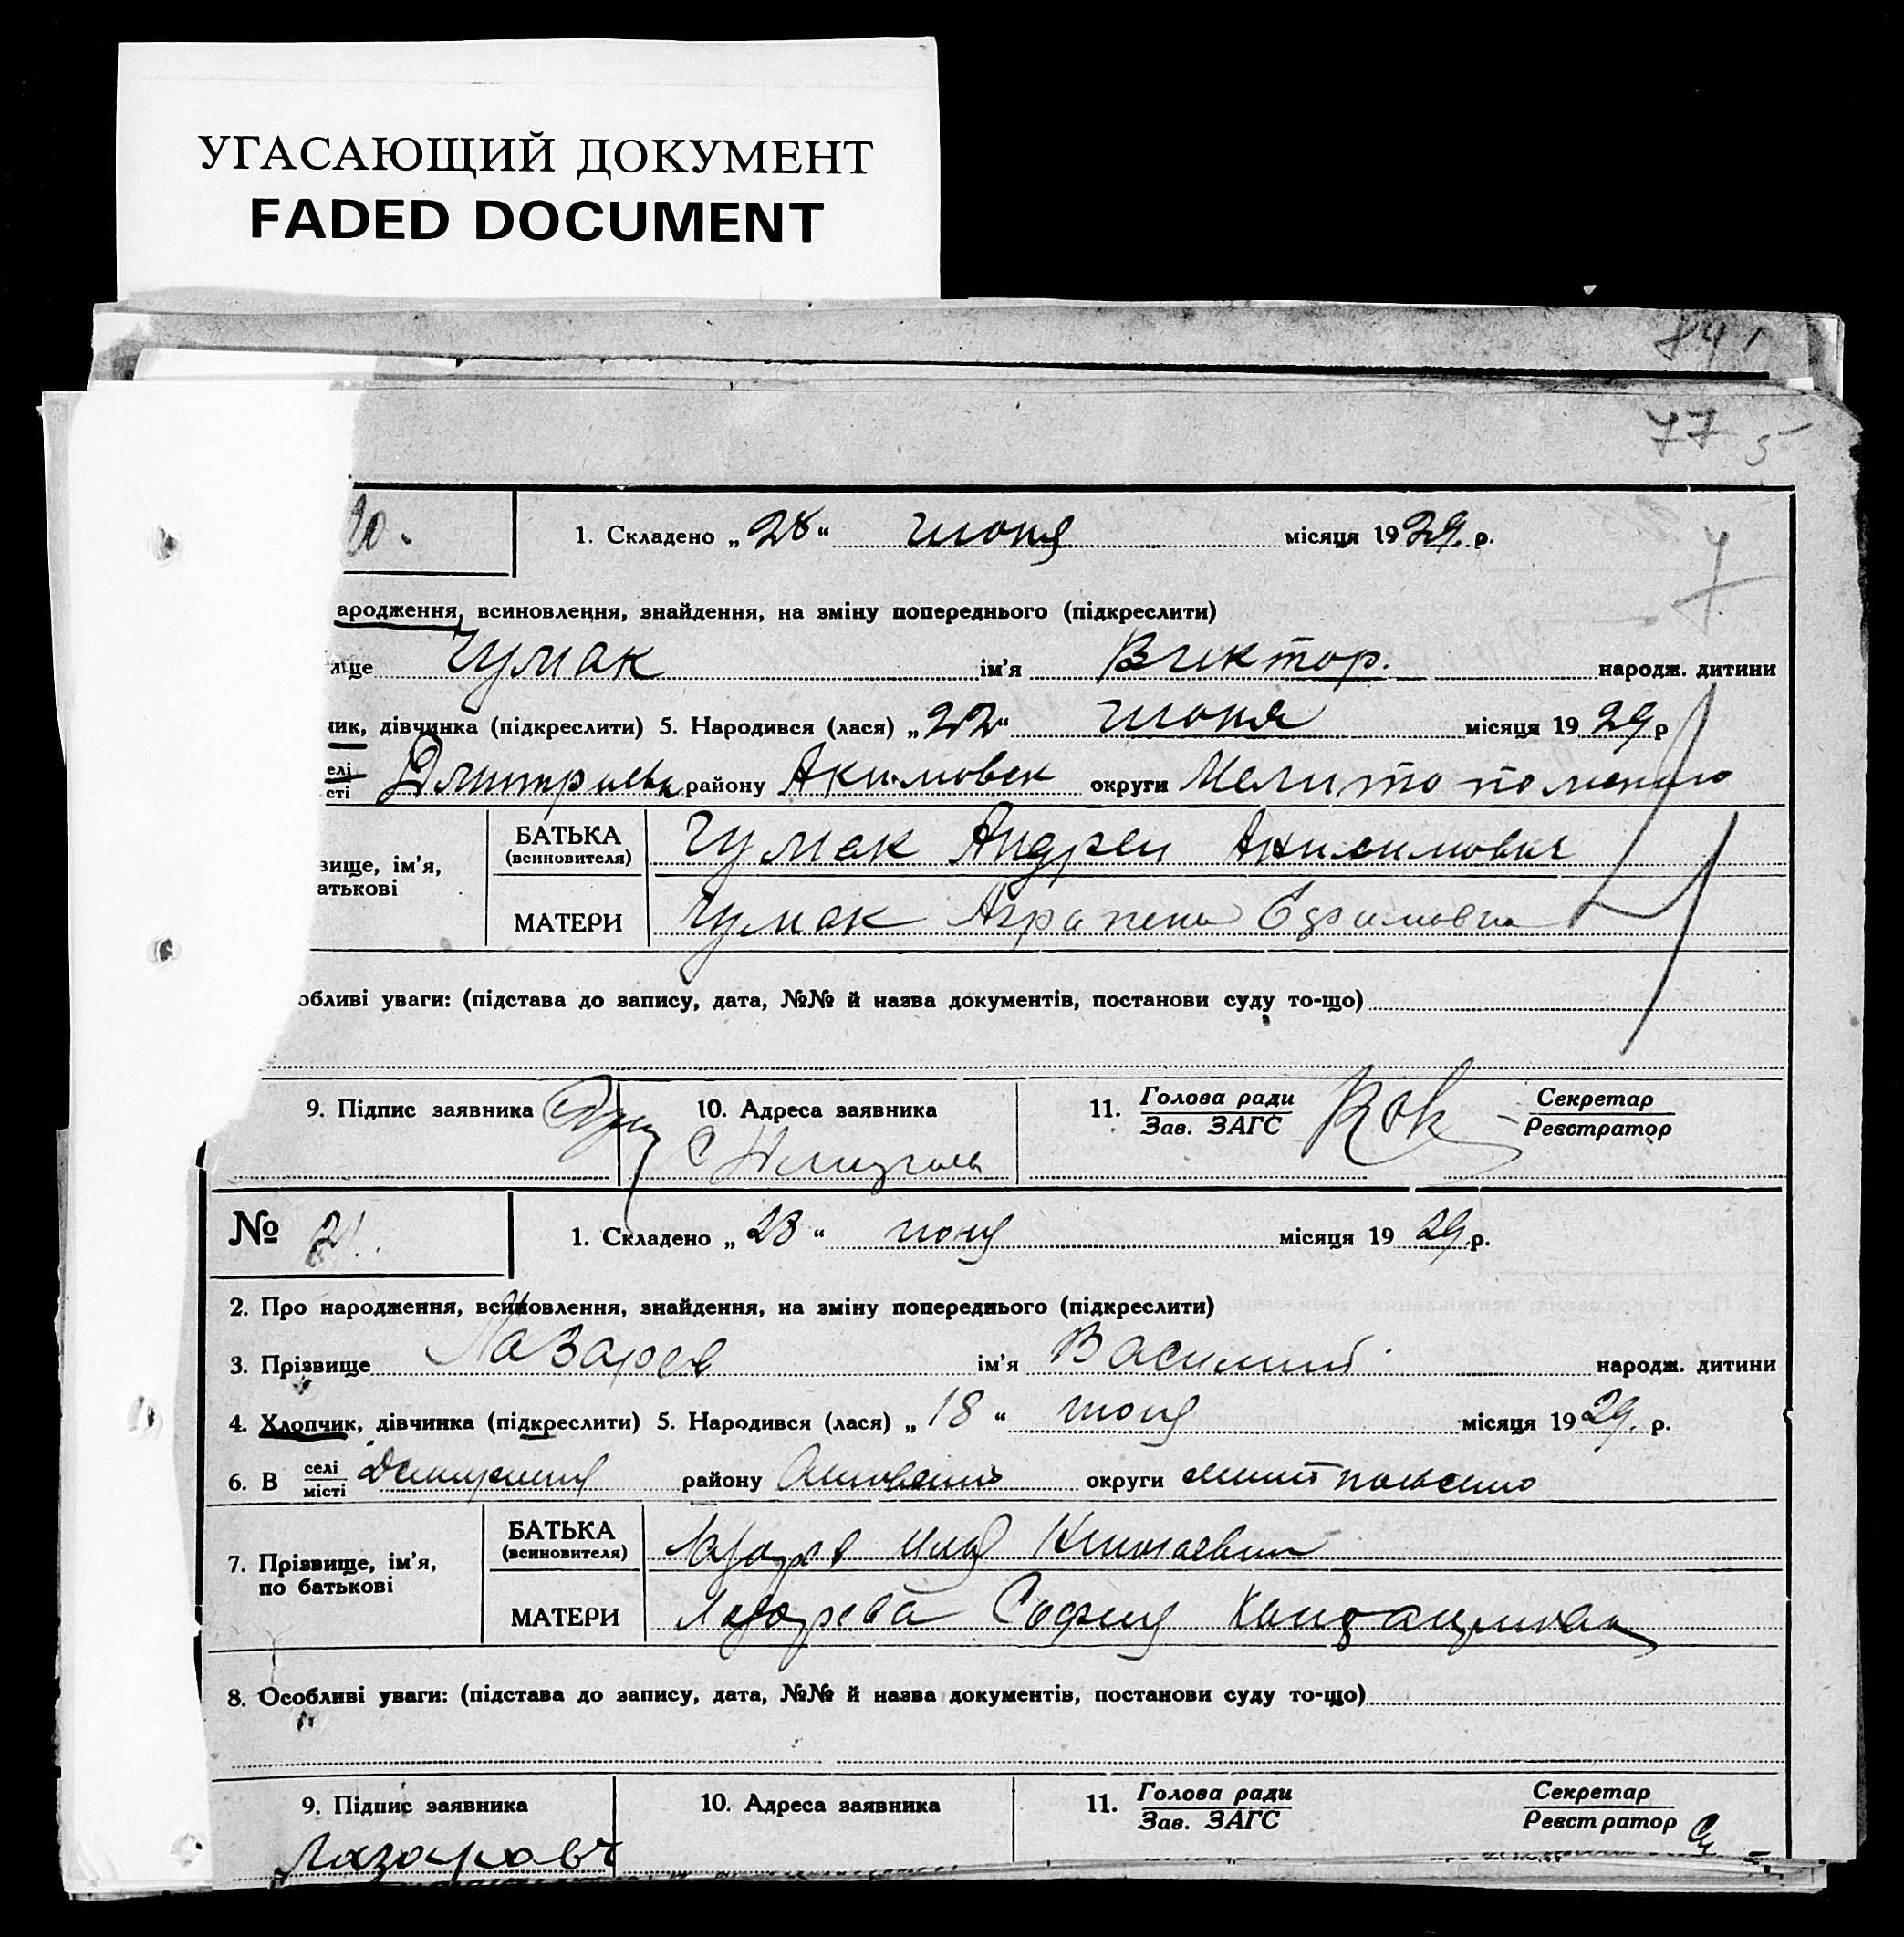 УГАСАЮЩИЙ ДОКУМЕНТ
FADED DOCUMENT
77 5
20.
1. Складено „28“ июня місяця 1929. р.
ародження, всиновлення, знайдення, на зміну попереднього (підкреслити)
ище Чумак ім’я Виктор. народж. дитини
чик, дівчинка (підкреслити) 5. Народився (лася) „22“ июня місяця 1929 р
елі
сті
Дмитриевк району Акимовск округи Мелитопольско
вище, ім’я,
атькові
БАТЬКА
(всиновителя)
Чумак Андреи Анисимович
МАТЕРИ
Чумак Аграпена Ефимовна
обливі уваги: (підстава до запису, дата, №№ й назва документів, постанови суду то-що)
9. Підпис заявника
10. Адреса заявника
с
11. Голова ради
Зав. ЗАГС
Секретар
Реєстратор
№ 21.
1. Складено „28“ июня місяця 1929. р.
2. Про народження, всиновлення, знайдення, на зміну попереднього (підкреслити)
3. Прізвище Лазарев ім’я Василий народж. дитини
4. Хлопчик, дівчинка (підкреслити) 5. Народився (лася) „18“ июня місяця 1929. р.
6. В селі
місті
району округи
7. Прізвище, ім’я,
по батькові
БАТЬКА
(всиновителя)
Лазарев Николаевич
МАТЕРИ
Лазарева София
8. Особливі уваги: (підстава до запису, дата, №№ й назва документів, постанови суду то-що)
9. Підпис заявника
10. Адреса заявника
11. Голова ради
Зав. ЗАГС
Секретар
Реєстратор